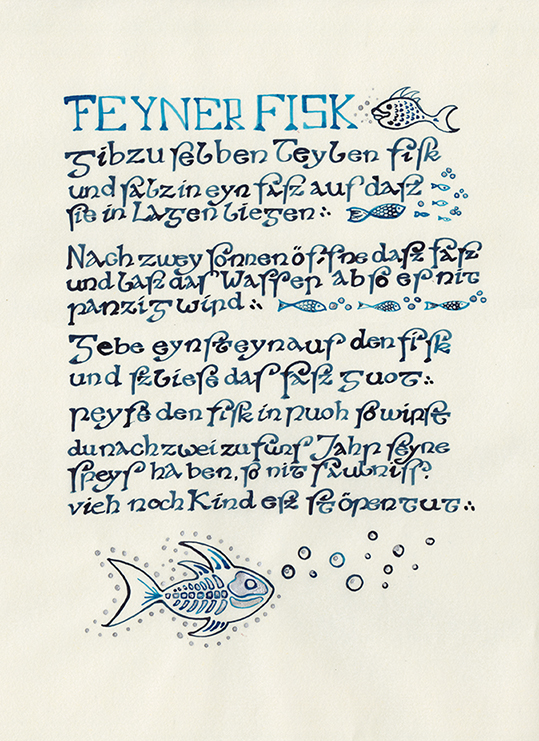 FEYNER FISK
Gib zu ſelben Teylen fiſk
und ſalz in eyn faſz auf daſz
ſie in Lagen liegen
Nach zwey ſonnen öffne daſz faſz
und laſz daſ Waſſer ab ſo eſ nit
ranzig wird
Gebe eyn ſteyn auf den fiſk
und ſkließe daſ faſz guot
reyfe den fiſk in ruoh ſo wirſt
du nach zwei zu fünf Jahr feyne
ſpeyſ haben, ſo nit
vieh noch Kind eſz ſtören tut